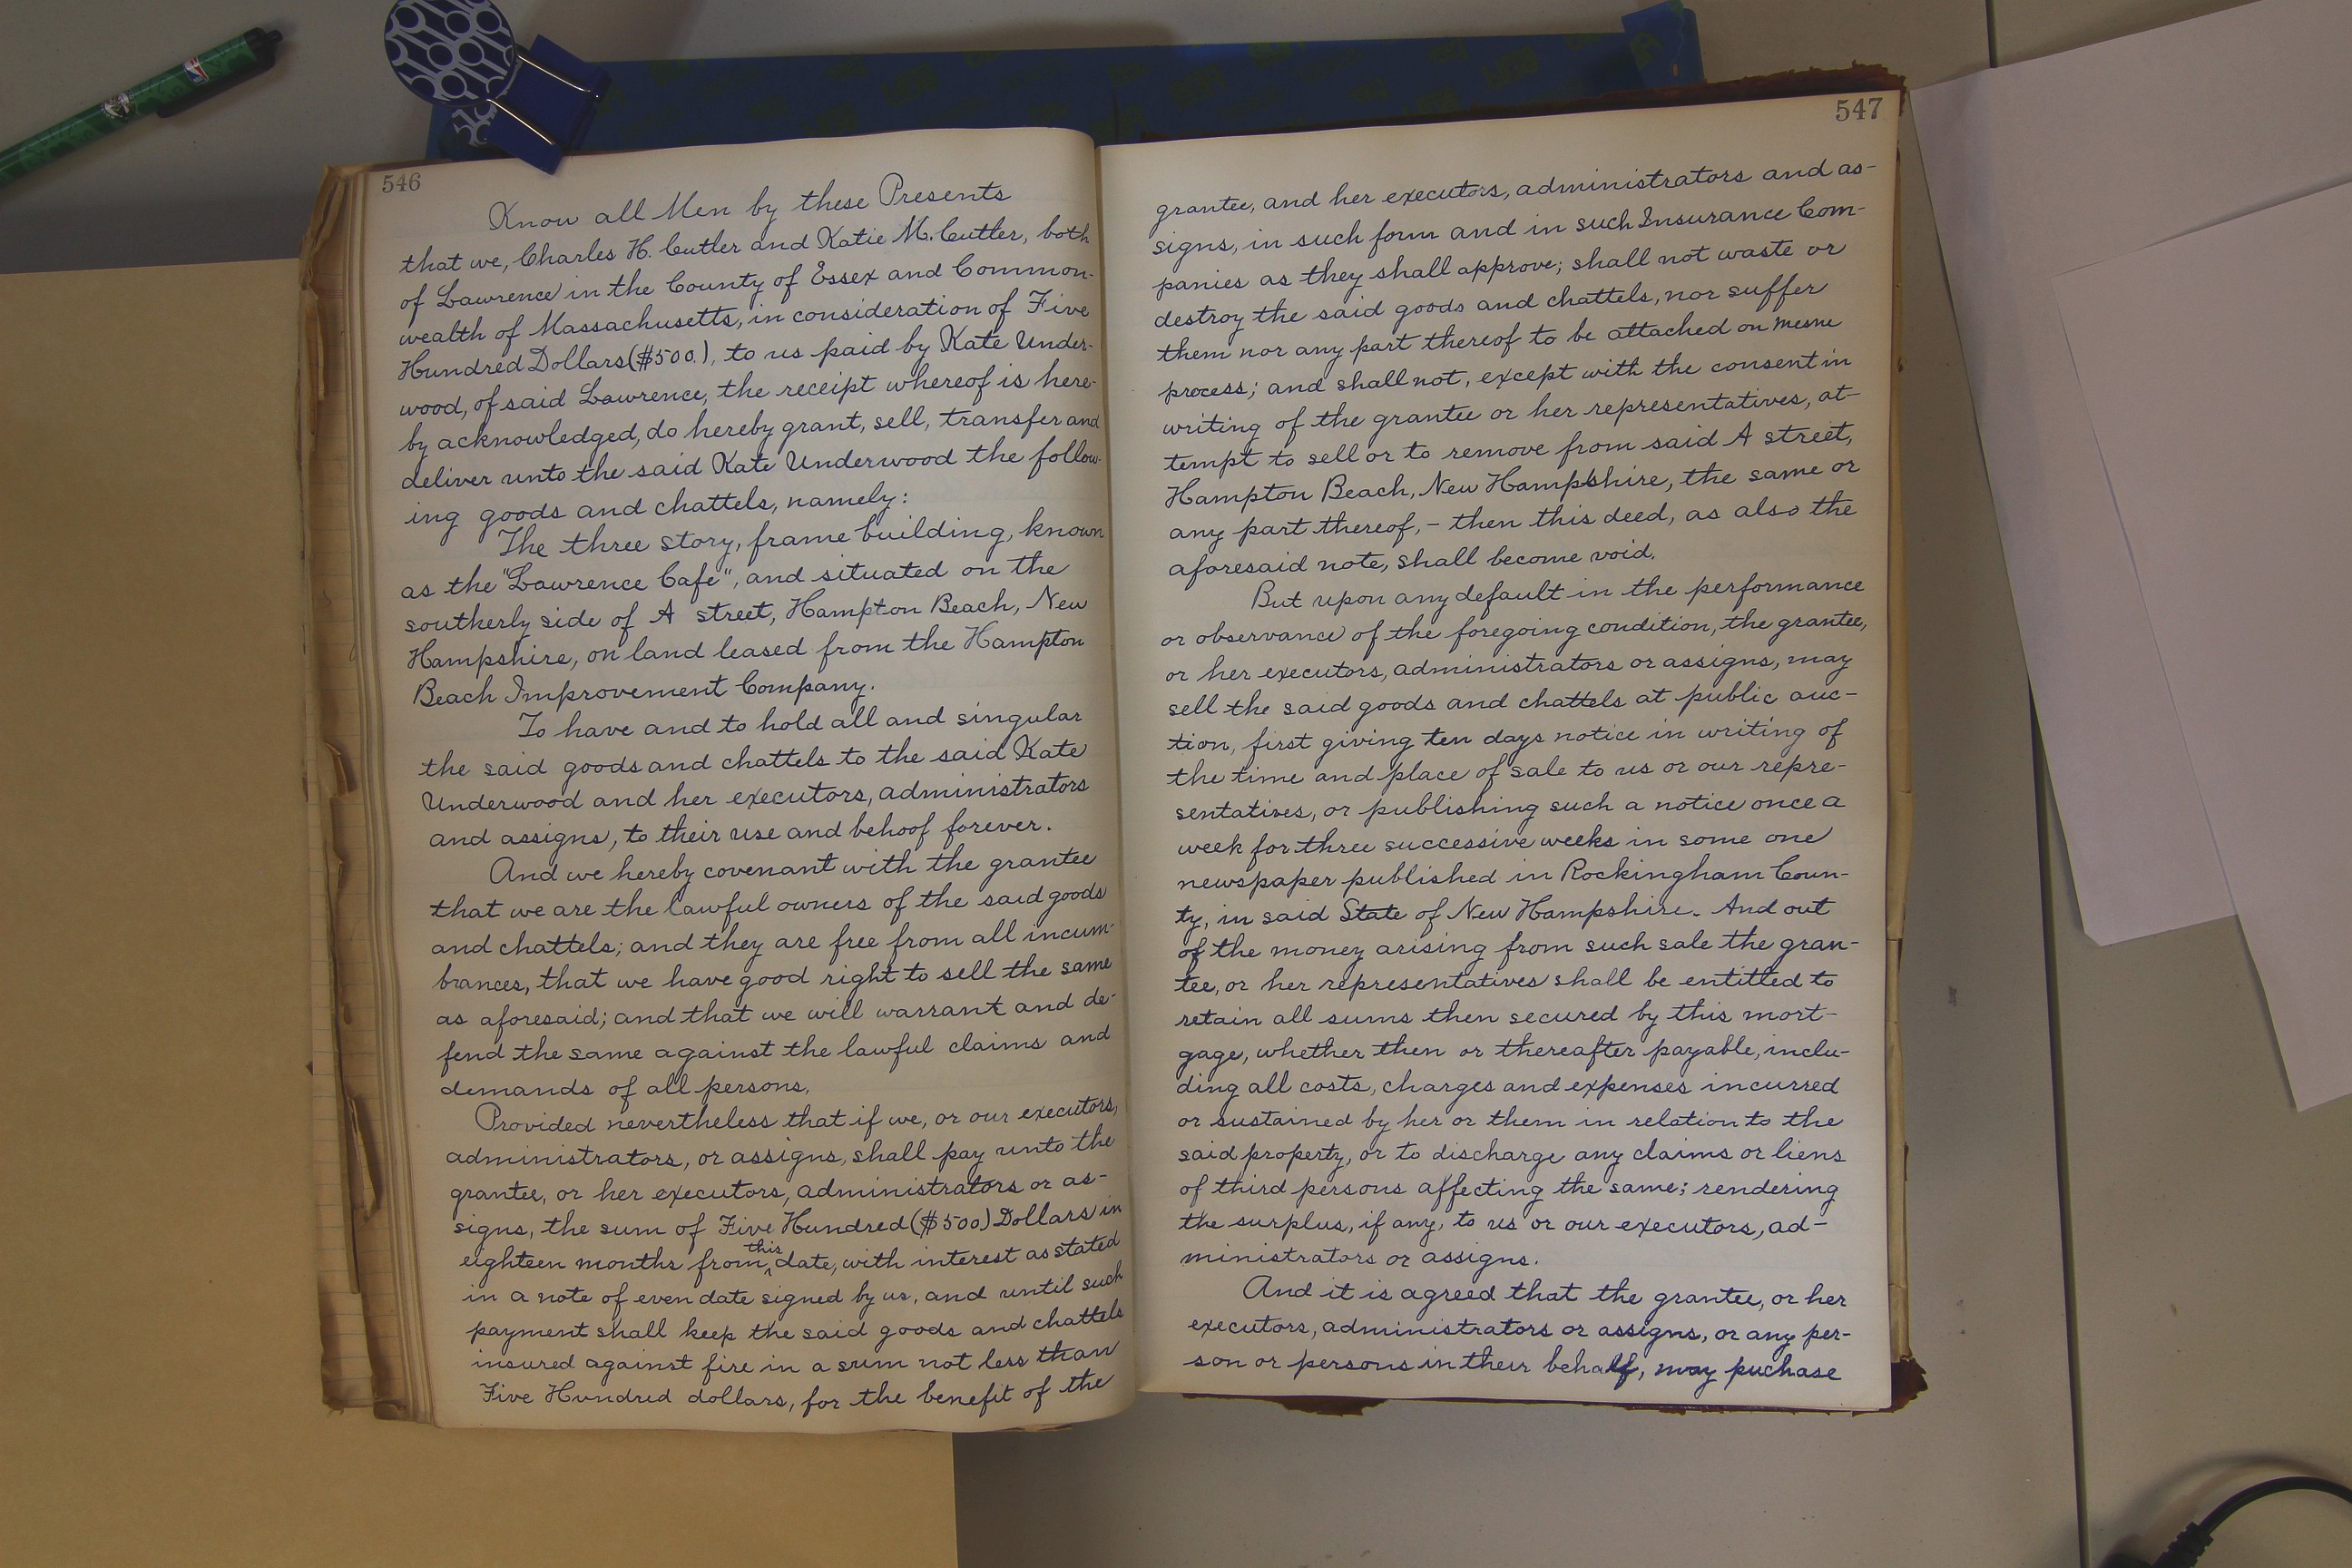 546
Know all Men by these Presents
that we, Charles H. Cutler and Katie M. Cutler, both
of Lawrence in the County of Essex and Common-
wealth of Massachusetts, in consideration of Five
Hundred Dollars ($500.), to us paid by Kate Under-
wood, of said Lawrence, the receipt whereof is here-
by acknowledged, do hereby grant, sell, transfer and
deliver unto the said Kate Underwood the follow-
ing goods and chattels, namely:
The three story, frame building, known
as the "Lawrence Cafe", and situated on the
southerly side of A street, Hampton Beach, New
Hampshire, on land leased from the Hampton
Beach Improvement Company.
To have and to hold all and singular
the said goods and chattels to the said Kate
Underwood and her executors, administrators
and assigns, to their use and behoof forever.
And we hereby covenant with the grantee
that we are the lawful owners of the said goods
and chattels; and they are free from all incum-
brances, that we have good right to sell the same
as aforesaid; and that we will warrant and de-
fend the same against the lawful claims and
demands of all persons.
Provided nevertheless that if we, or our executors,
administrators, or assigns, shall pay unto the
grantee, or her executors, administrators or as-
signs, the sum of Five Hundred ($500) Dollars in
eighteen months from this date, with interest as stated
in a note of even date signed by us, and until such
payment shall keep the said goods and chattels
insured against fire in a sum not less than
Five Hundred dollars, for the benefit of the
547
grantee, and her executors, administrators and as-
signs, in such form and in such Insurance Com-
panies as they shall approve; shall not waste or
destroy the said goods and chattels, nor suffer
them nor any part thereof to be attached on mesne
process; and shall not, except with the consent in
writing of the grantee or her representatives, at-
tempt to sell or to remove from said A street,
Hampton Beach, New Hampshire, the same or
any part thereof, - then this deed, as also the
aforesaid note, shall become void.
But upon any default in the performance
or observance of the foregoing condition, the grantee,
or her executors, administrators or assigns, may
sell the said goods and chattels at public auc-
tion, first giving ten days notice in writing of
the time and place of sale to us or our repre-
sentatives, or publishing such a notice once a
week for three successive weeks in some one
newspaper published in Rockingham Coun-
ty, in said State of New Hampshire. And out
of the money arising from such sale the gran-
tee, or her representatives shall be entitled to
retain all sums then secured by this mort-
gage, whether then or thereafter payable, inclu-
ding all costs, charges and expenses incurred
or sustained by her or them in relation to the
said property, or to discharge any claims or liens
of third persons affecting the same; rendering
the surplus, if any, to us or our executors, ad-
ministrators or assigns.
And it is agreed that the grantee, or her
executors, administrators or assigns, or any per-
son or persons in their behalf, may puchase